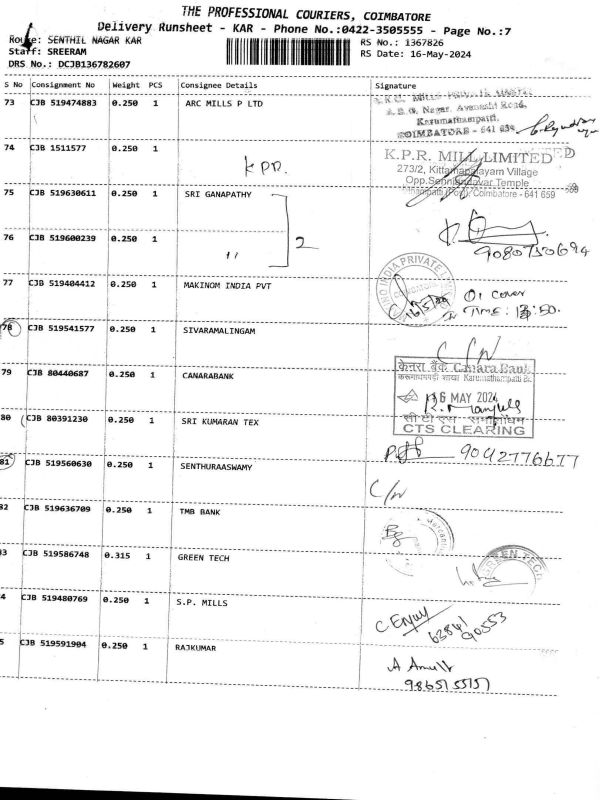 THE PROFESSIONAL COURIERS, COIMBATORE
Delivery Runsheet - KAR - Phone No.:0422-3505555 - Page No.:7
Route: SENTHIL NAGAR KAR
RS No.: 1367826
Staff: SREERAM
RS Date: 16-May-2024
DRS No.: DCJB136782607
S No Consignment No Weight PCS Consignee Details Signature
73 CJB 519474883 0.250 1 ARC MILLS P LTD
Karumathampatti.
COIMBATORE - 641 659
74 CJB 1511577 0.250 1 KPR.
K.P.R. MILL LIMITED
273/2, Kittampalayam Village
Opp. Temple
Coimbatore - 641 659
75 CJB 519630611 0.250 1 SRI GANAPATHY
2
76 CJB 519600239 0.250 1 ,,
9080750694
77 CJB 519404412 0.250 1 MAKINOM INDIA PVT
INDIA PRIVATE
16/5/24
01 cover
Time: 13:50.
78 CJB 519541577 0.250 1 SIVARAMALINGAM
C/N
79 CJB 80440687 0.250 1 CANARABANK
केनरा बैंक Canara Bank
Karumathampatti
16 MAY 2024
CTS CLEARING
80 CJB 80391230 0.250 1 SRI KUMARAN TEX
9042776677
81 CJB 519560630 0.250 1 SENTHURAASWAMY
C/N
32 CJB 519636709 0.250 1 TMB BANK
33 CJB 519586748 0.315 1 GREEN TECH
GREEN TECH
4 CJB 519480769 0.250 1 S.P. MILLS
63841
90553
5 CJB 519591904 0.250 1 RAJKUMAR
9865155151